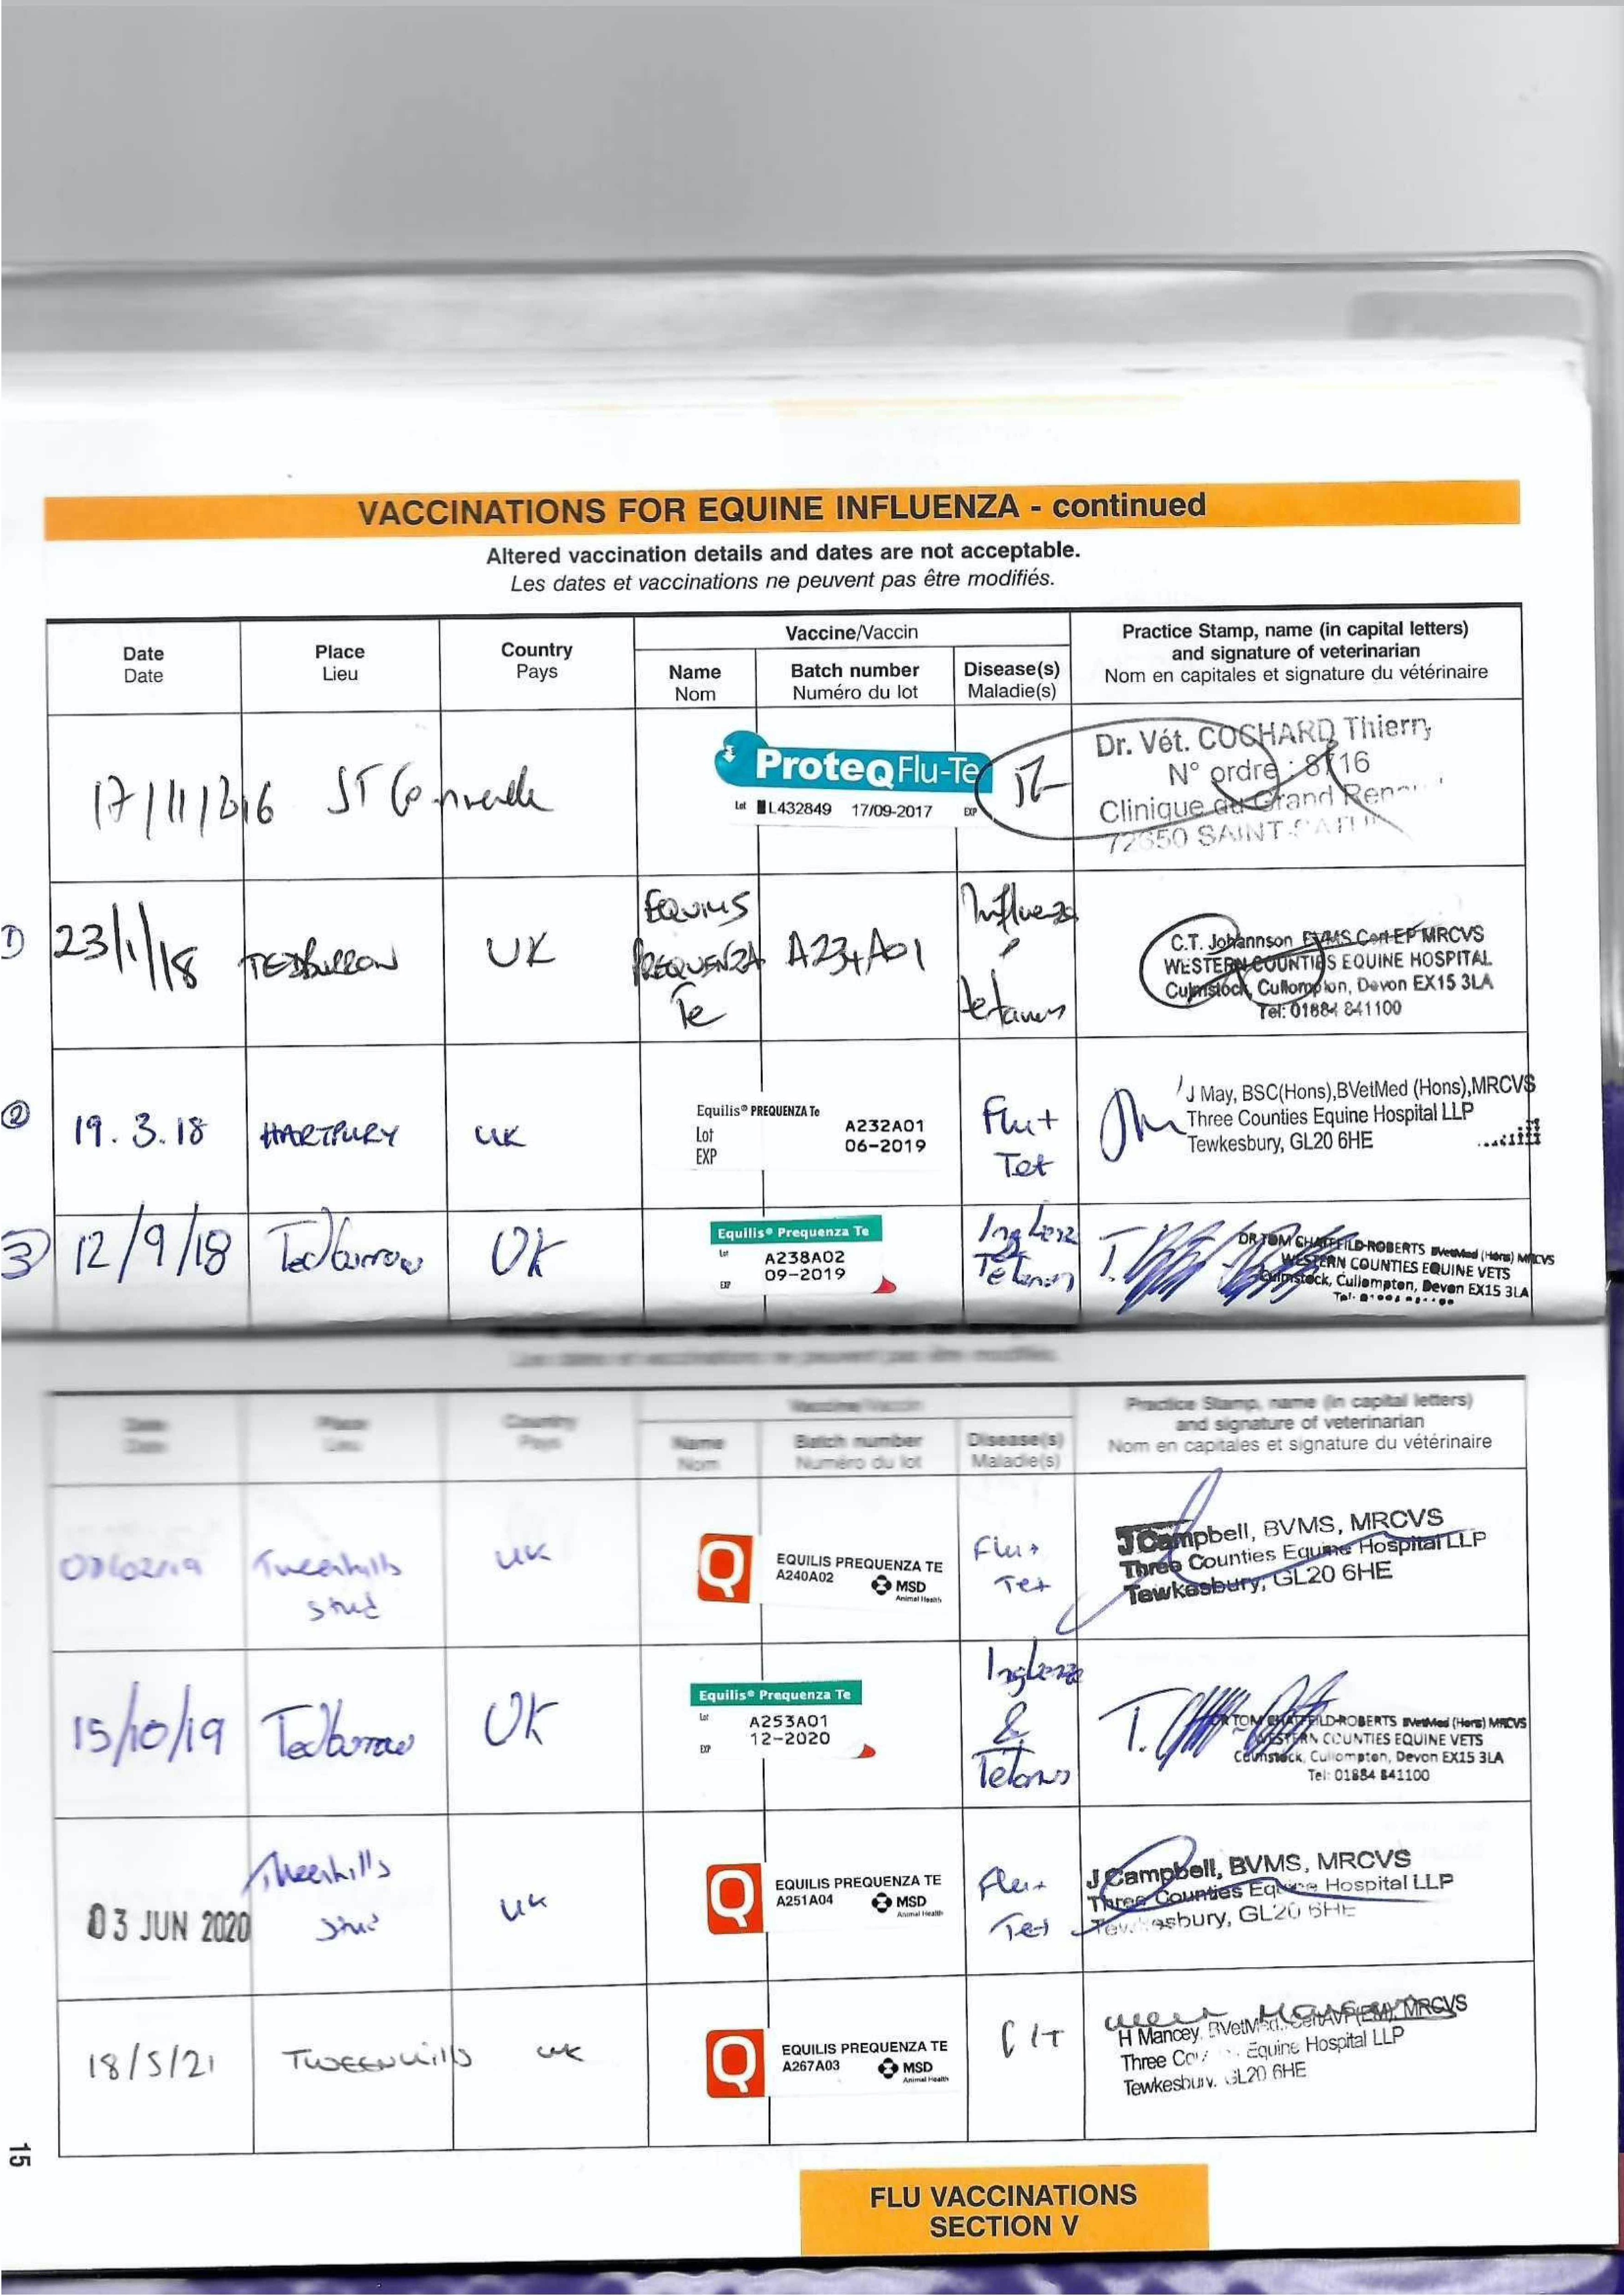 VACCINATIONS FOR EQUINE INFLUENZA - continued
Altered vaccination details and dates are not acceptable.
Les dates et vaccinations ne peuvent pas être modifiés.
Date
Date
Place
Lieu
Country
Pays
Vaccine/Vaccin
Name
Nom
Batch number
Numéro du lot
Disease(s)
Maladie(s)
Practice Stamp, name (in capital letters)
and signature of veterinarian
Nom en capitales et signature du vétérinaire
17/11/2016
ST
ProteqFlu-Te
Lot L432849 17/09-2017 EXP
Dr. Vét. COSHARD Thierry
N° ordre : 8716
Clinique du Grand
72650 SAINT
1
23/1/18
TEDBURROW
UK
EQUILIS
PREQUENZA
Te
A234A01
Influenza
&
Tetanus
C.T. Johannson BVMS Cert EP MRCVS
WESTERN COUNTIES EQUINE HOSPITAL
Culmstock, Cullompton, Devon EX15 3LA
Tel: 01884 841100
2
19.3.18
HARTPURY
UK
Equilis® PREQUENZA Te
Lot A232A01
EXP 06-2019
Flu+
Tet
J May, BSC(Hons),BVetMed (Hons),MRCVS
Three Counties Equine Hospital LLP
Tewkesbury, GL20 6HE
3
12/9/18
Tedburrow
UK
Equilis® Prequenza Te
Lot A238A02
EXP 09-2019
Influenza
Tetanus
T.
DR TOM CHATFEILD-ROBERTS BVetMed (Hons) MRCVS
WESTERN COUNTIES EQUINE VETS
Culmstock, Cullompton, Devon EX15 3LA
Les dates et vaccinations ne peuvent pas être modifiés.
Date
Date
Place
Lieu
Country
Pays
Vaccine/Vaccin
Name
Nom
Batch number
Numéro du lot
Disease(s)
Maladie(s)
Practice Stamp, name (in capital letters)
and signature of veterinarian
Nom en capitales et signature du vétérinaire
Tweenhills
Stud
UK
Q
EQUILIS PREQUENZA TE
A240A02
MSD
Animal Health
Flu+
Tet
J Campbell, BVMS, MRCVS
Three Counties Equine Hospital LLP
Tewkesbury, GL20 6HE
15/10/19
Tedburrow
UK
Equilis® Prequenza Te
Lot A253A01
EXP 12-2020
Influenza
&
Tetanus
T.
DR TOM CHATFEILD-ROBERTS BVetMed (Hons) MRCVS
WESTERN COUNTIES EQUINE VETS
Culmstock, Cullompton, Devon EX15 3LA
Tel: 01884 841100
03 JUN 2020
Tweenhills
Stud
UK
Q
EQUILIS PREQUENZA TE
A251A04
MSD
Animal Health
Flu+
Tet
J Campbell, BVMS, MRCVS
Three Counties Equine Hospital LLP
Tewkesbury, GL20 6HE
18/5/21
TWEENHILLS
UK
Q
EQUILIS PREQUENZA TE
A267A03
MSD
Animal Health
H Mancey, BVetMed, CertAVP(EM), MRCVS
Three Equine Hospital LLP
Tewkesbury, GL20 6HE
15
FLU VACCINATIONS
SECTION V